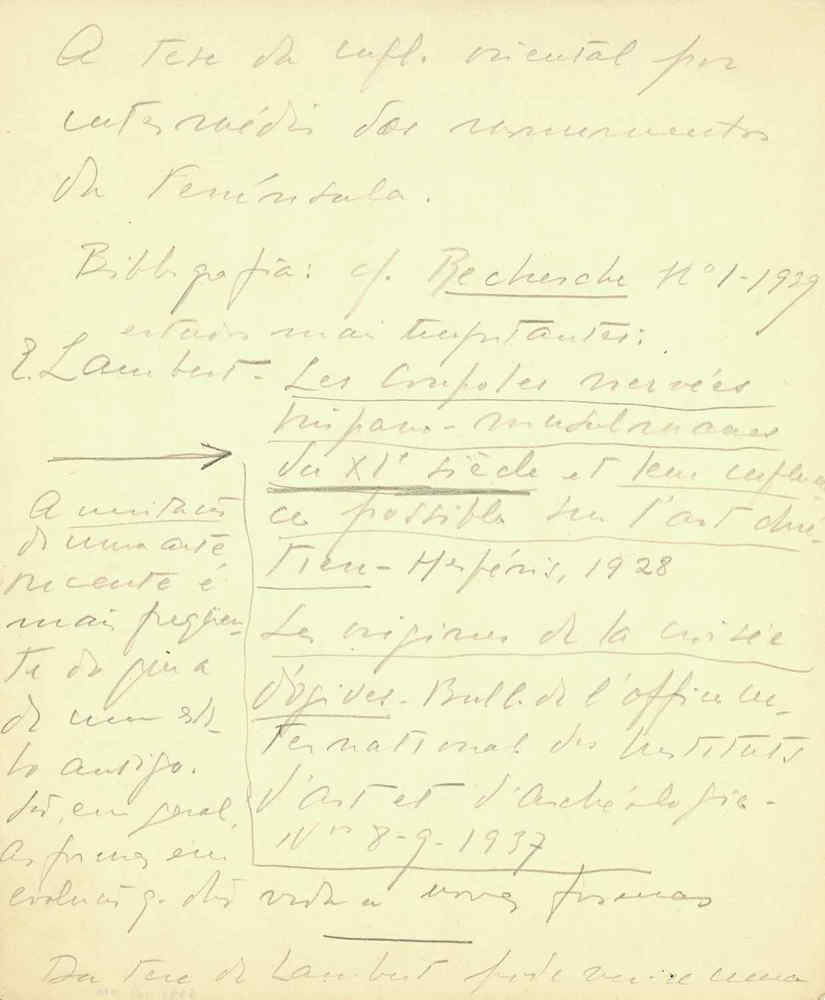 A tese da infl. oriental por
intermédio dos monumentos
da Península.
Bibliografia: cf. Recherche Nº 1-1939
estudos mais importantes:
E. Lambert - Les Coupoles nervées
hispano-musulmanes
du XIe siècle et leur influen
ce possible sur l'art chré-
tien - Hespéris, 1928
Les origines de la croisée
d'ogives - Bull. de l'office in-
ternational des Instituts
d'art et d'archéologie -
Nos 8-9-1937
A imitação
de uma arte
recente é
mais freqüen-
te do que a
de um esti-
lo antigo.
Só, em geral,
as formas em
evolução q. dão vida a novas formas
Da tese de Lambert pode ver-se uma